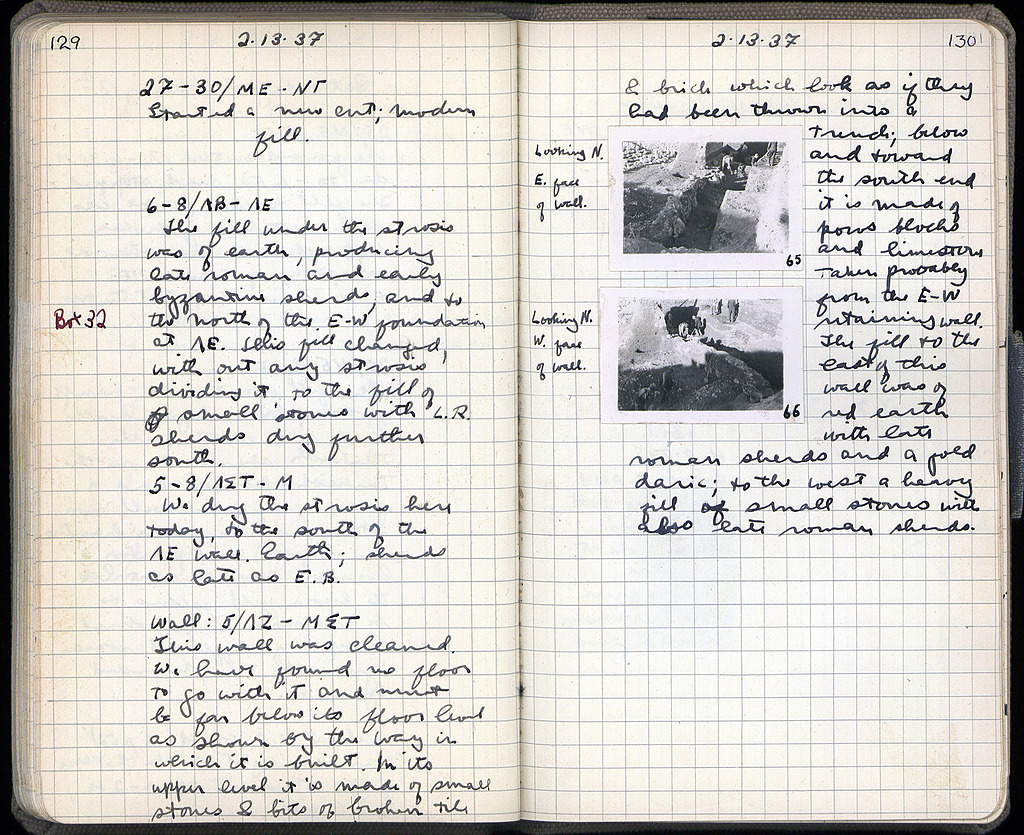 129
2·13·37
27-30/ME-NT
Started a new cut; modern
fill.
6-8/ΛB-ΛE
The fill under the strosis
was of earth, producing
late roman and early
byzantine sherds, and to
Box 32
the north of the E-W foundation
at ΛE. This fill changed,
with out any strosis
dividing it, to the fill of
small stones with L.R.
sherds dug further
south.
5-8/ΛΣT-M
We dug the strosis here
today, to the south of the
ΛE wall. Earth; sherds
as late as E.B.
Wall: 5/ΛZ-MΣT
This wall was cleaned.
We have found no floor
to go with it and must
be far below its floor level
as shown by the way in
which it is built. In its
upper level it is made of small
stones & bits of broken tile
2·13·37
130
& brick which look as if they
had been thrown into a
trench; below
and toward
the south end
it is made of
poros blocks
and limestone
taken probably
from the E-W
retaining wall.
The fill to the
east of this
wall was of
red earth
with late
roman sherds and a gold
daric; to the west a heavy
fill of small stones with
also late roman sherds.
Looking N.
E. face
of wall.
65
Looking N.
W. face
of wall.
66